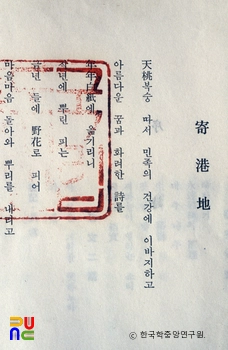 寄港地
天桃복숭 따서 민족의 건강에 이바지하고
아름다운 꿈과 화려한 詩를
年年白紙에 옮기리니
작년에 뿌린 피는
금년 들에 野花로 피어
마음마음 돌아와 뿌리를 내리고
© 한국학중앙연구원.